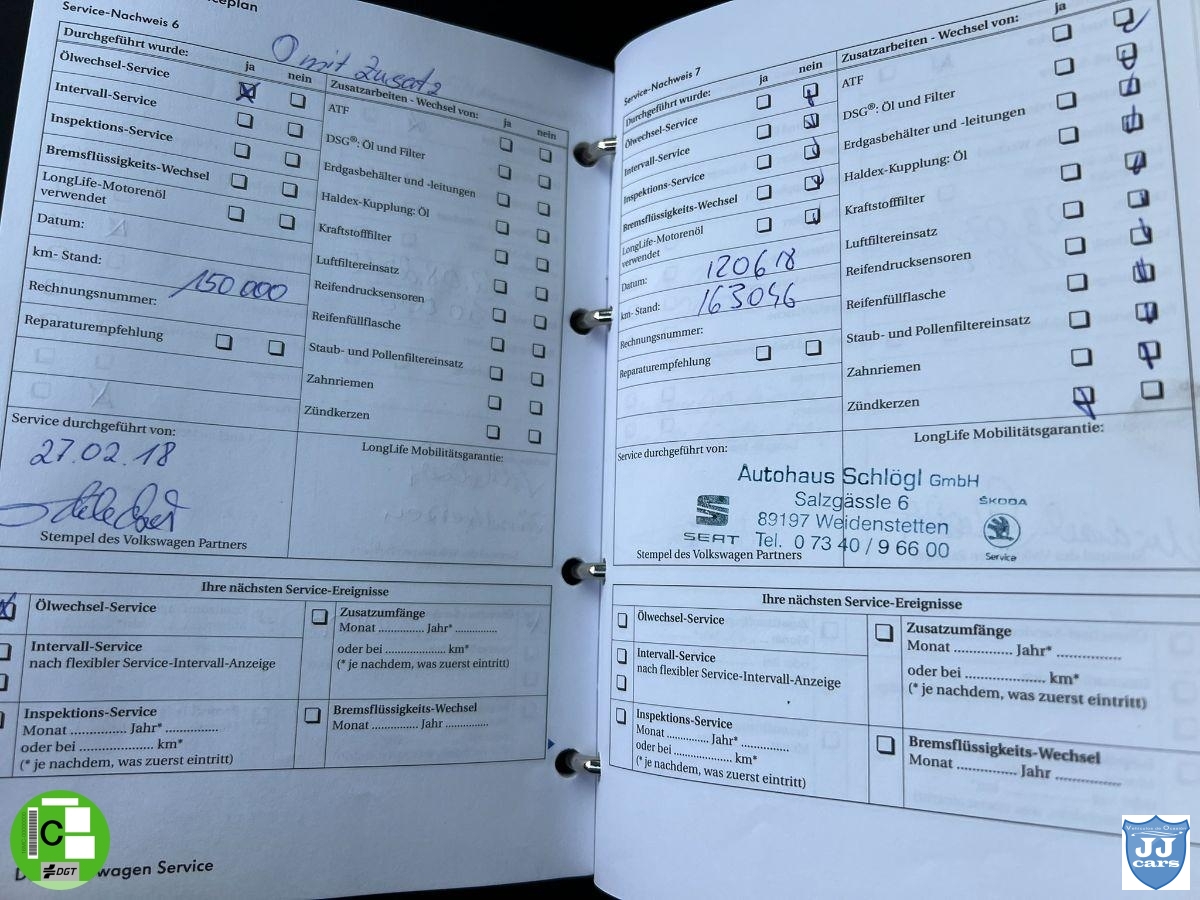 ceplan
Service-Nachweis 6
O mit Zusatz
Durchgeführt wurde:
ja
nein
Ölwechsel-Service
Intervall-Service
Inspektions-Service
Bremsflüssigkeits-Wechsel
LongLife-Motorenöl
verwendet
Datum:
km- Stand:
150 000
Rechnungsnummer:
Reparaturempfehlung
Zusatzarbeiten - Wechsel von:
ja
nein
ATF
DSG®: Öl und Filter
Erdgasbehälter und -leitungen
Haldex-Kupplung: Öl
Kraftstofffilter
Luftfiltereinsatz
Reifendrucksensoren
Reifenfüllflasche
Staub- und Pollenfiltereinsatz
Zahnriemen
Zündkerzen
Service durchgeführt von:
27.02.18
Stempel des Volkswagen Partners
LongLife Mobilitätsgarantie:
Ihre nächsten Service-Ereignisse
Ölwechsel-Service
Intervall-Service
nach flexibler Service-Intervall-Anzeige
Inspektions-Service
Monat .............. Jahr* ..............
oder bei .................... km*
(* je nachdem, was zuerst eintritt)
Zusatzumfänge
Monat .............. Jahr* ..............
oder bei .................... km*
(* je nachdem, was zuerst eintritt)
Bremsflüssigkeits-Wechsel
Monat .............. Jahr ..............
wagen Service
C
DGT
Service-Nachweis 7
Durchgeführt wurde:
ja
nein
Ölwechsel-Service
Intervall-Service
Inspektions-Service
Bremsflüssigkeits-Wechsel
LongLife-Motorenöl
verwendet
Datum:
120618
km- Stand:
163046
Rechnungsnummer:
Reparaturempfehlung
Zusatzarbeiten - Wechsel von:
ja
ATF
DSG®: Öl und Filter
Erdgasbehälter und -leitungen
Haldex-Kupplung: Öl
Kraftstofffilter
Luftfiltereinsatz
Reifendrucksensoren
Reifenfüllflasche
Staub- und Pollenfiltereinsatz
Zahnriemen
Zündkerzen
Service durchgeführt von:
LongLife Mobilitätsgarantie:
Autohaus Schlögl GmbH
Salzgässle 6
89197 Weidenstetten
Tel. 0 73 40 / 9 66 00
SEAT
ŠKODA
Service
Stempel des Volkswagen Partners
Ihre nächsten Service-Ereignisse
Ölwechsel-Service
Intervall-Service
nach flexibler Service-Intervall-Anzeige
Inspektions-Service
Monat .............. Jahr* ..............
oder bei .................... km*
(* je nachdem, was zuerst eintritt)
Zusatzumfänge
Monat .............. Jahr* ..............
oder bei .................... km*
(* je nachdem, was zuerst eintritt)
Bremsflüssigkeits-Wechsel
Monat .............. Jahr ..............
JJ
cars